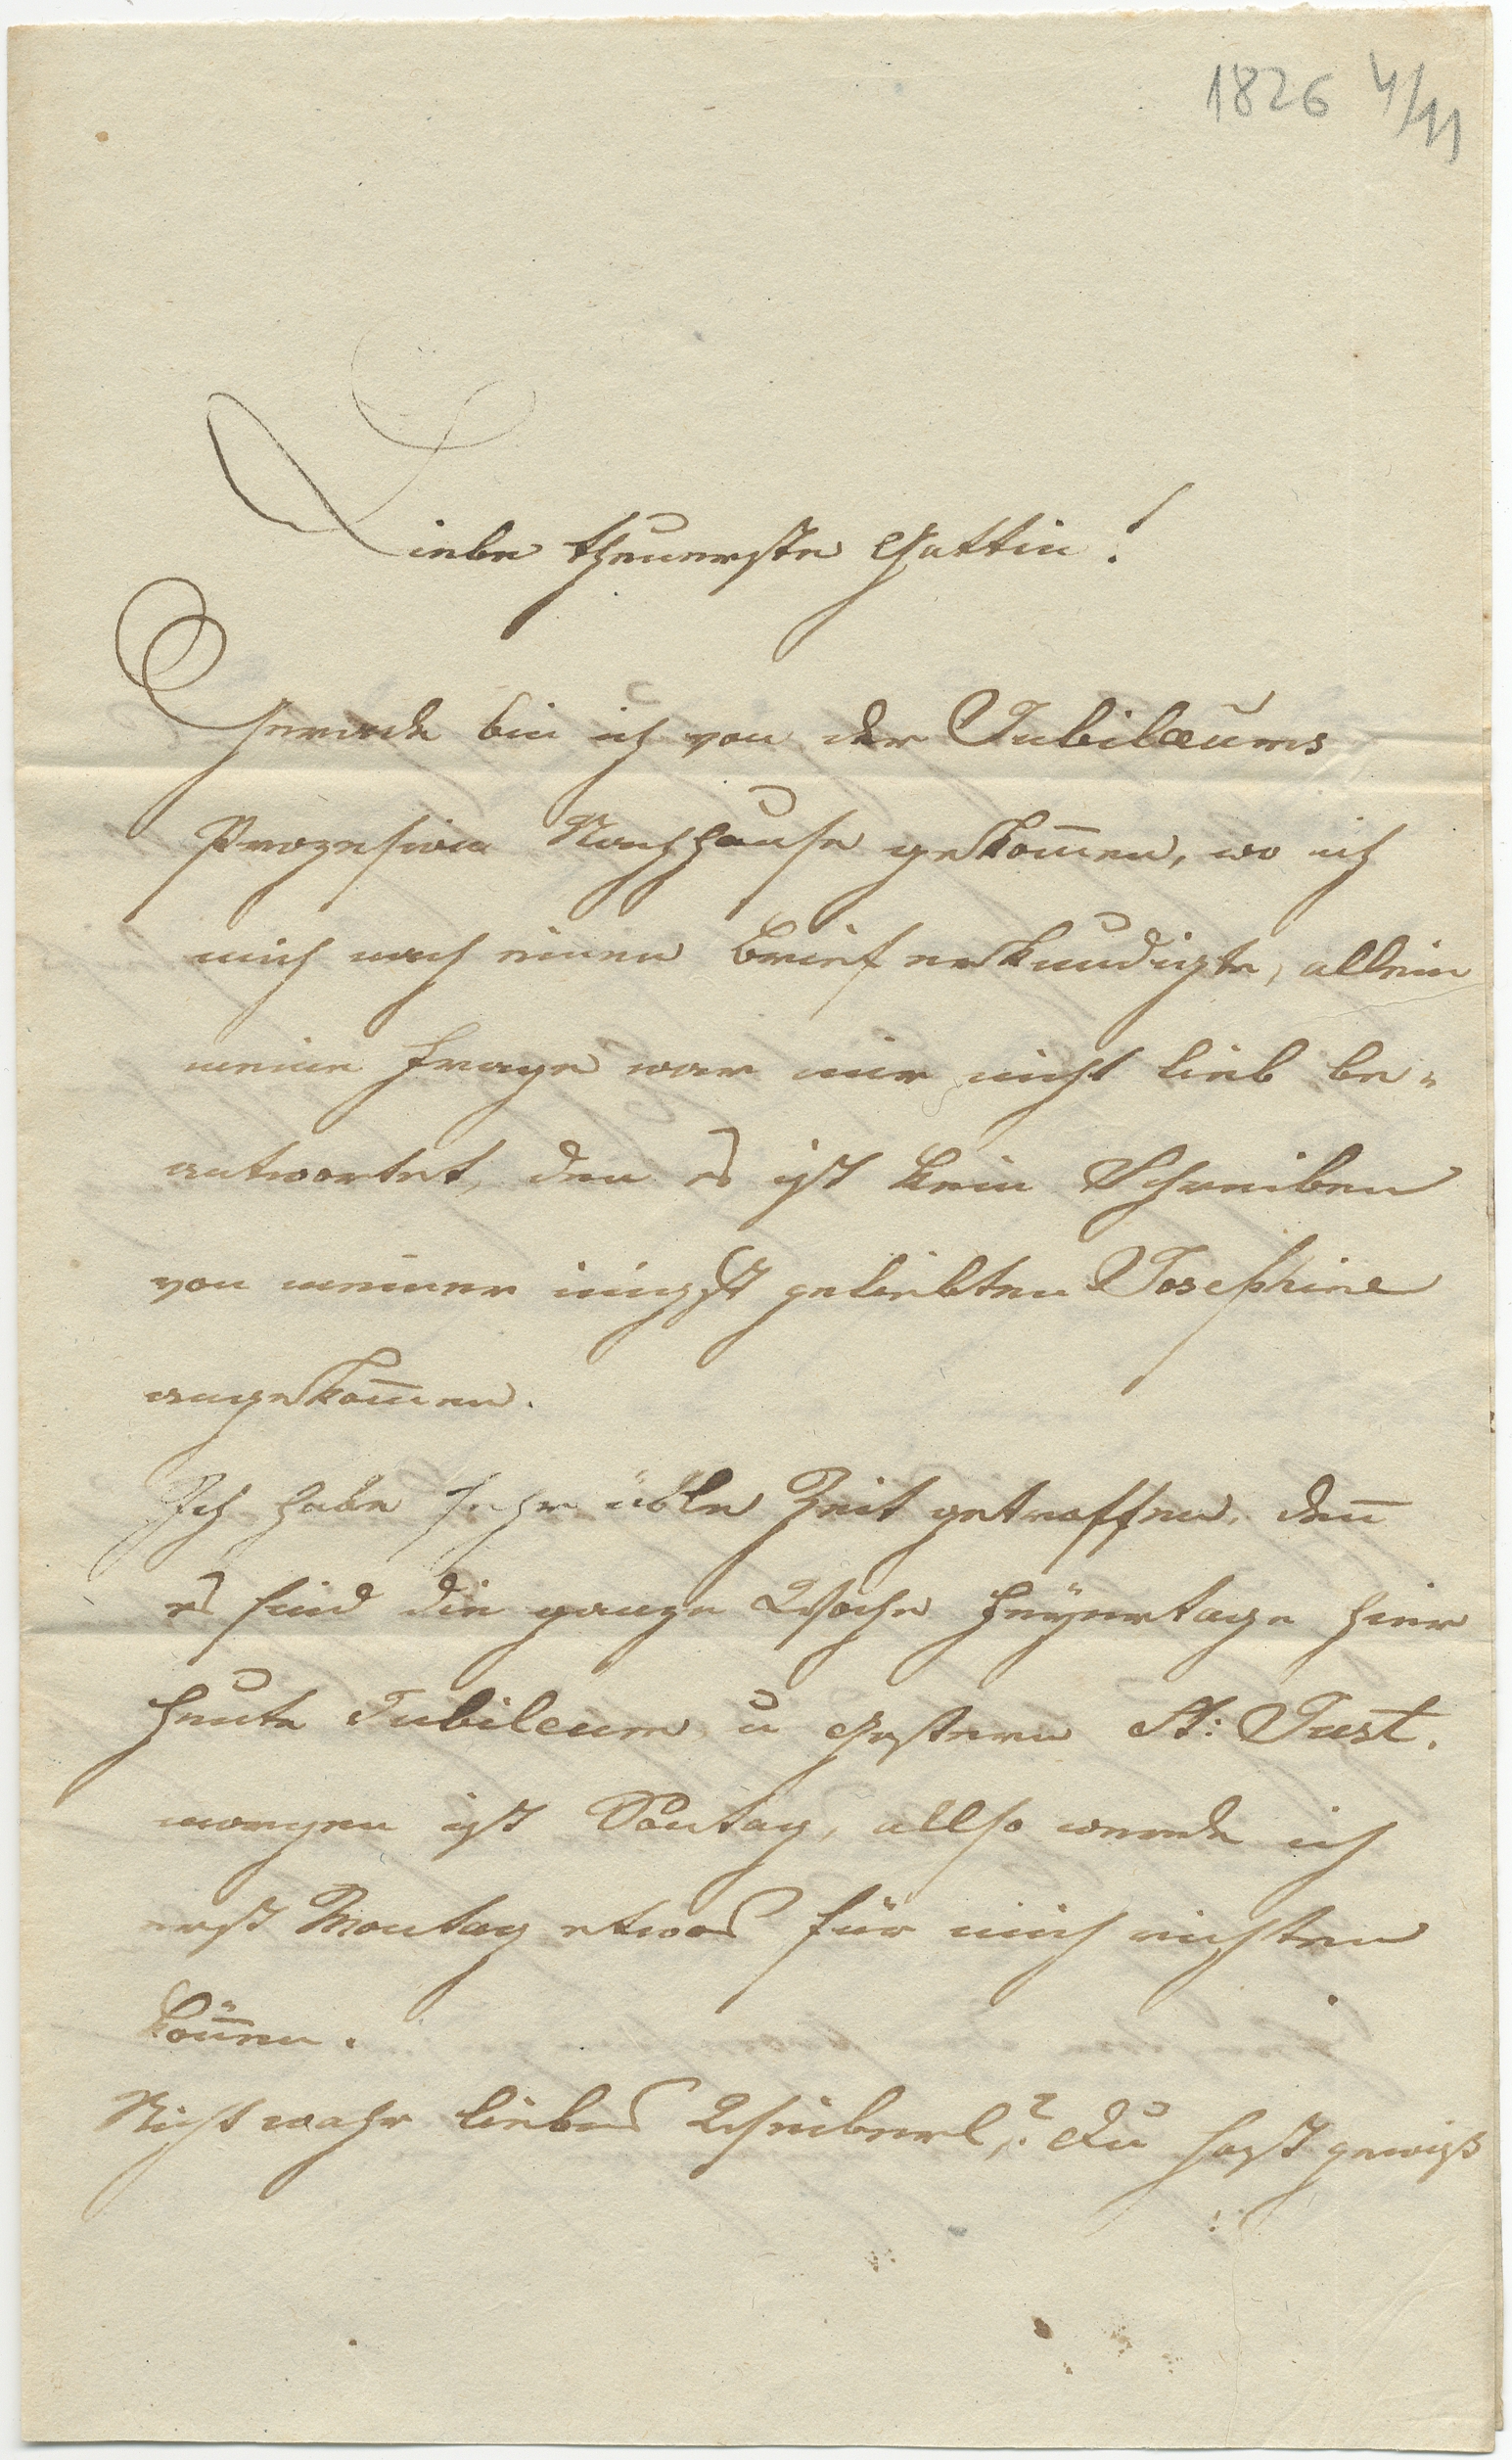 1826 4/11
Liebe theuerste Gattin!
Gerade bin ich von der Jubilæums
Prozession Nachhause gekom̅en, wo ich
mich nach einen Brief erkundigte, allein
meine Frage war mir nicht lieb be=
antwortet, den es ist kein Schreiben
von meiner innigst geliebten Josephine
angekom̅en.
Ich habe sehr üble Zeit getroffen, den̅
es sind die ganze Woche Feÿertage hier
heute Jubileum u Gestern St: Just.
morgen ist Son̅tag, allso werde ich
erst Montag etwas für mich richten
kön̅en.
Nicht wahr liebes Weiberl,? Du hast gewiß